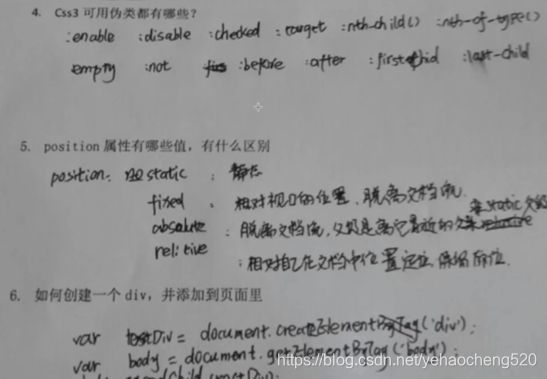 4. Css3 可用伪类都有哪些?
:enable :disable :checked :target :nth-child() :nth-of-type()
empty :not :before :after :first-child :last-child
5. position 属性有哪些值，有什么区别
position: static : 静态
fixed : 相对视口的位置, 脱离文档流.
absolute : 脱离文档流, 父级是离它最近的非static父级
relitive
: 相对自己在文档中位置定位 保留原位.
6. 如何创建一个 div，并添加到页面里
var testDiv = document.createElement('div');
var body = document.getElementByTag('body');
https://blog.csdn.net/yehaocheng520